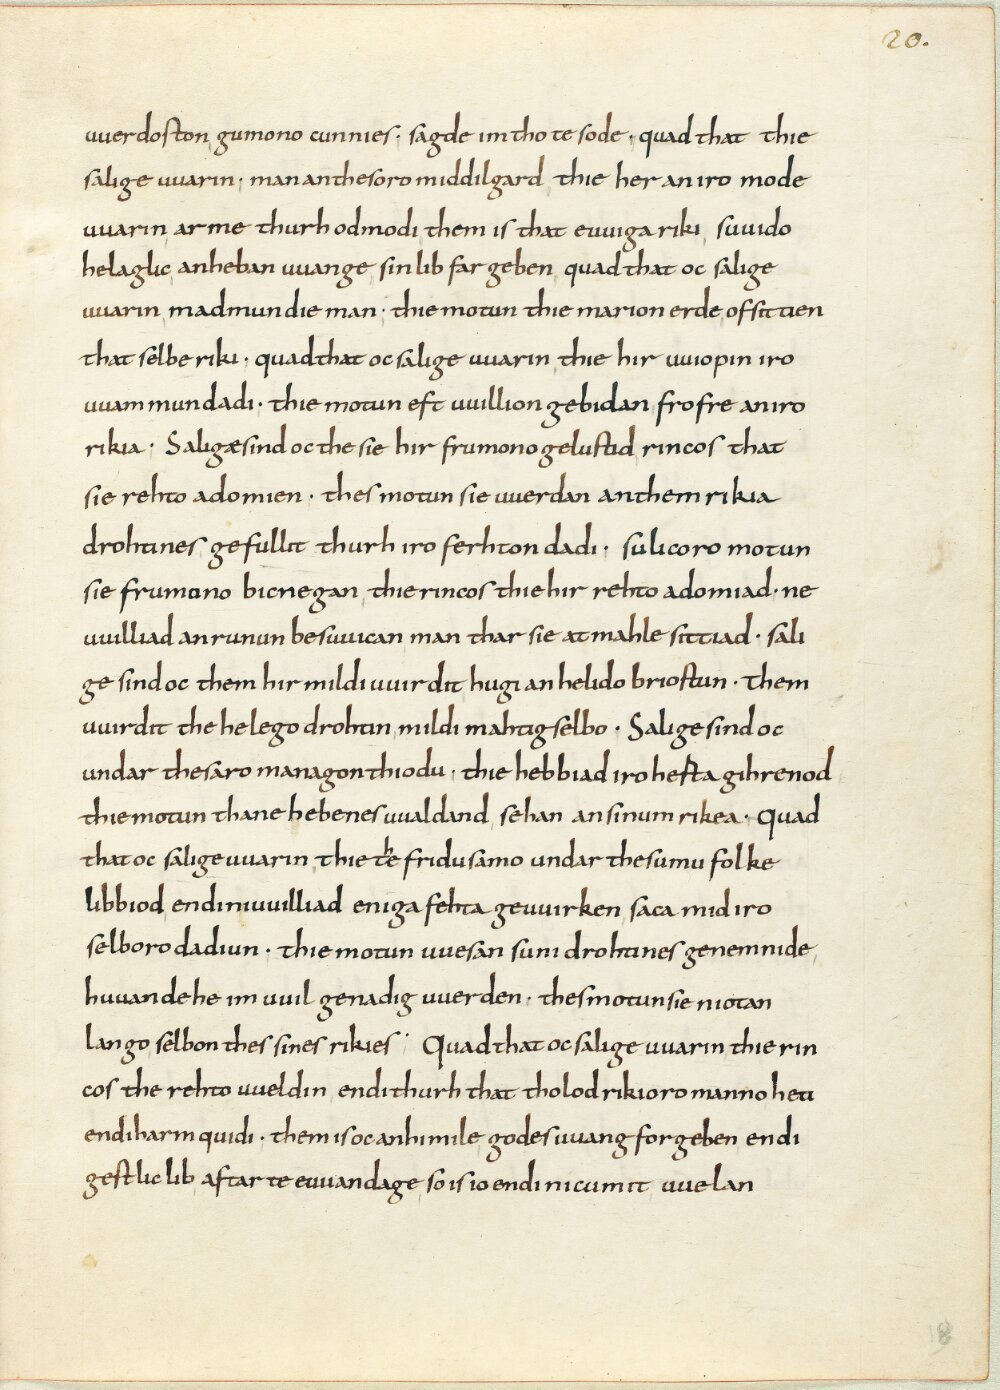 20.
uuerdoston gumono cunnies · sagde im tho te sode · quad that thie
salige uuarin · man an thesoro middilgard thie her an iro mode
uuarin arme thurh odmodi them is that euuiga riki suuido
helaglic an heban uuange sin lib far geben quad that oc salige
uuarin madmundie man · thie motun thie marion erde ofsittien
that selbe riki · quad that oc salige uuarin thie hir uuiopin iro
uuammun dadi · thie motun eft uuillion gebidan frofre an iro
rikia · Saligæ sind oc the sie hir frumono gelustid rincos that
sie rehto adomien · thes motun sie uuerdan an them rikia
drohtines gefullit thurh iro ferhton dadi · sulicoro motun
sie frumono bicnegan thie rincos thie hir rehto adomiad · ne
uuilliad an runun besuuican man thar sie at mahle sittiad · sali
ge sind oc them hir mildi uuirdit hugi an helido briostun · them
uuirdit the helego drohtin mildi mahtig selbo · Salige sind oc
undar thesaro managon thiodu · thie hebbiad iro hefta gihrenod
thie motun thane hebenes uualdand sehan an sinum rikea · Quad
that oc salige uuarin thie the fridusamo undar thesumu folke
libbiod endi ni uuilliad eniga fehta geuuirken saca mid iro
selboro dadiun · thie motun uuesan suni drohtines genemnide
huuande he im uuil genadig uuerden · thes motun sie niotan
lango selbon thes sines rikies · Quad that oc salige uuarin thie rin
cos the rehto uueldin endi thurh that tholod rikioro manno heti
endi harmquidi · them is oc an himile godes uuang forgeben endi
gestlic lib aftar te euuandage so is io endi ni cumit uuelan
18